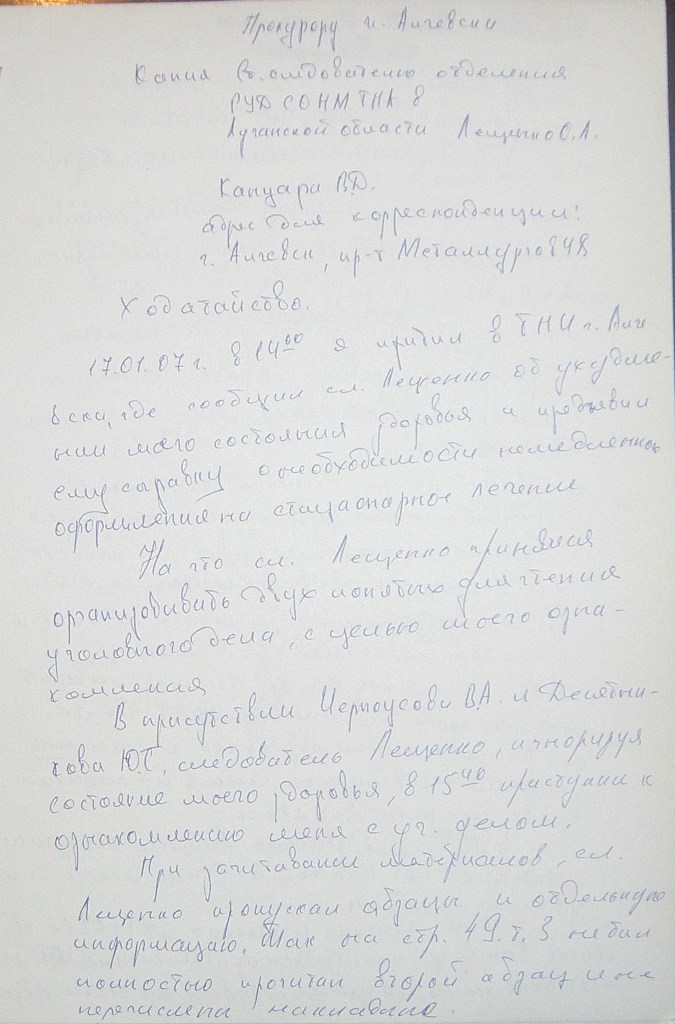 Прокурору г. Алчевски
Копия Ст. следователю отделения
РУД СОНМ ТНА в
Луганской области Лещенко О.Л.
Капцара В.D.
адрес для корреспонденции:
г. Алчевск, пр-т Металлургов
Ходатайство.
17.01.07 г. в 14 00 я прибыл в ГНИ г. Алч
евска, где сообщил сл. Лещенко об ухудше-
нии моего состояния здоровья и предъявил
ему справку о необходимости немедленного
оформления на стационарное лечение
На что сл. Лещенко принялся
организовывать двух понятых для чтения
уголовного дела, с целью моего озна-
комления
В присутствии Черноусова В.А. и Десятни-
кова Ю.Г, следователь Лещенко, игнорируя
состояние моего здоровья, в 15 40 приступил к
ознакомлению меня с уг. делом.
При зачитывании материалов, сл.
Лещенко пропускал абзацы и отдельную
информацию. Так на стр. 49. т. 3 не был
полностью прочитан второй абзац и не
перечислены накладные.